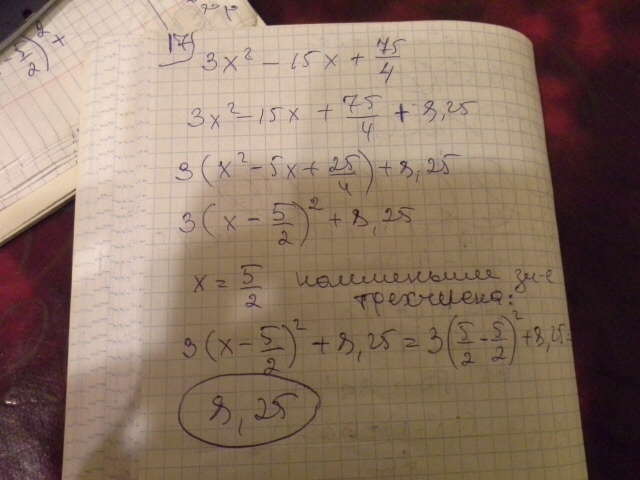 17) 3x² - 15x + 75/4
3x² - 15x + 75/4 + 8,25
3(x² - 5x + 25/4) + 8,25
3(x - 5/2)² + 8,25
x = 5/2 наименьшим зн-е
трехчлена:
3(x - 5/2)² + 8,25 = 3(5/2 - 5/2)² + 8,25 =
8,25